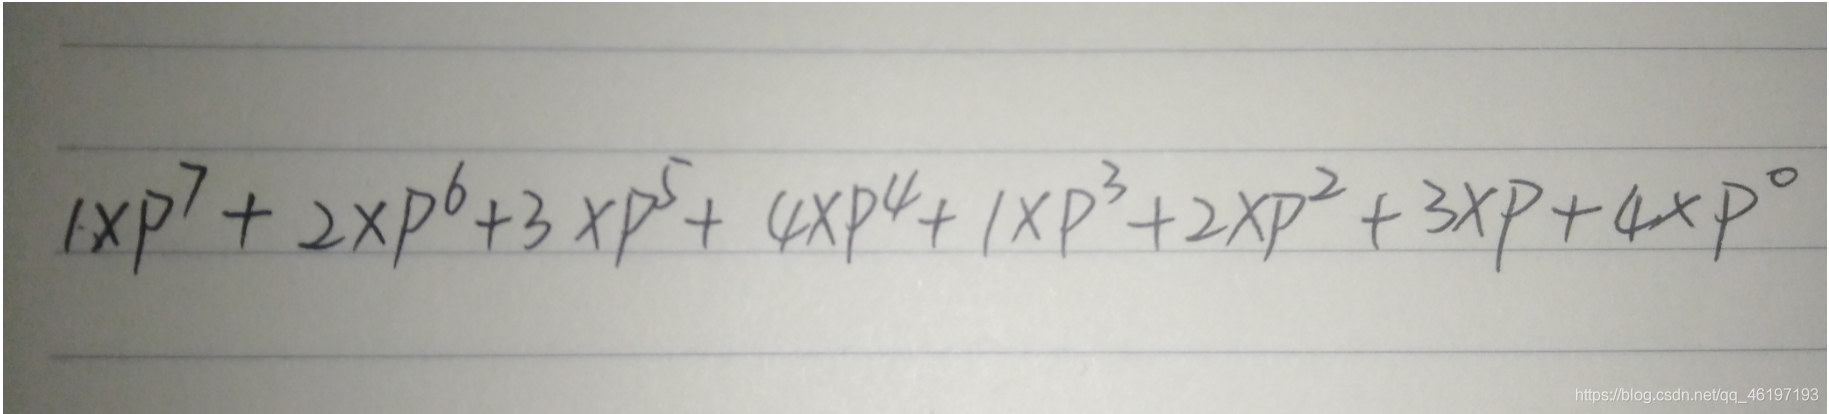 1×p⁷ + 2×p⁶ + 3×p⁵ + 4×p⁴ + 1×p³ + 2×p² + 3×p + 4×p⁰
https://blog.csdn.net/qq_46197193